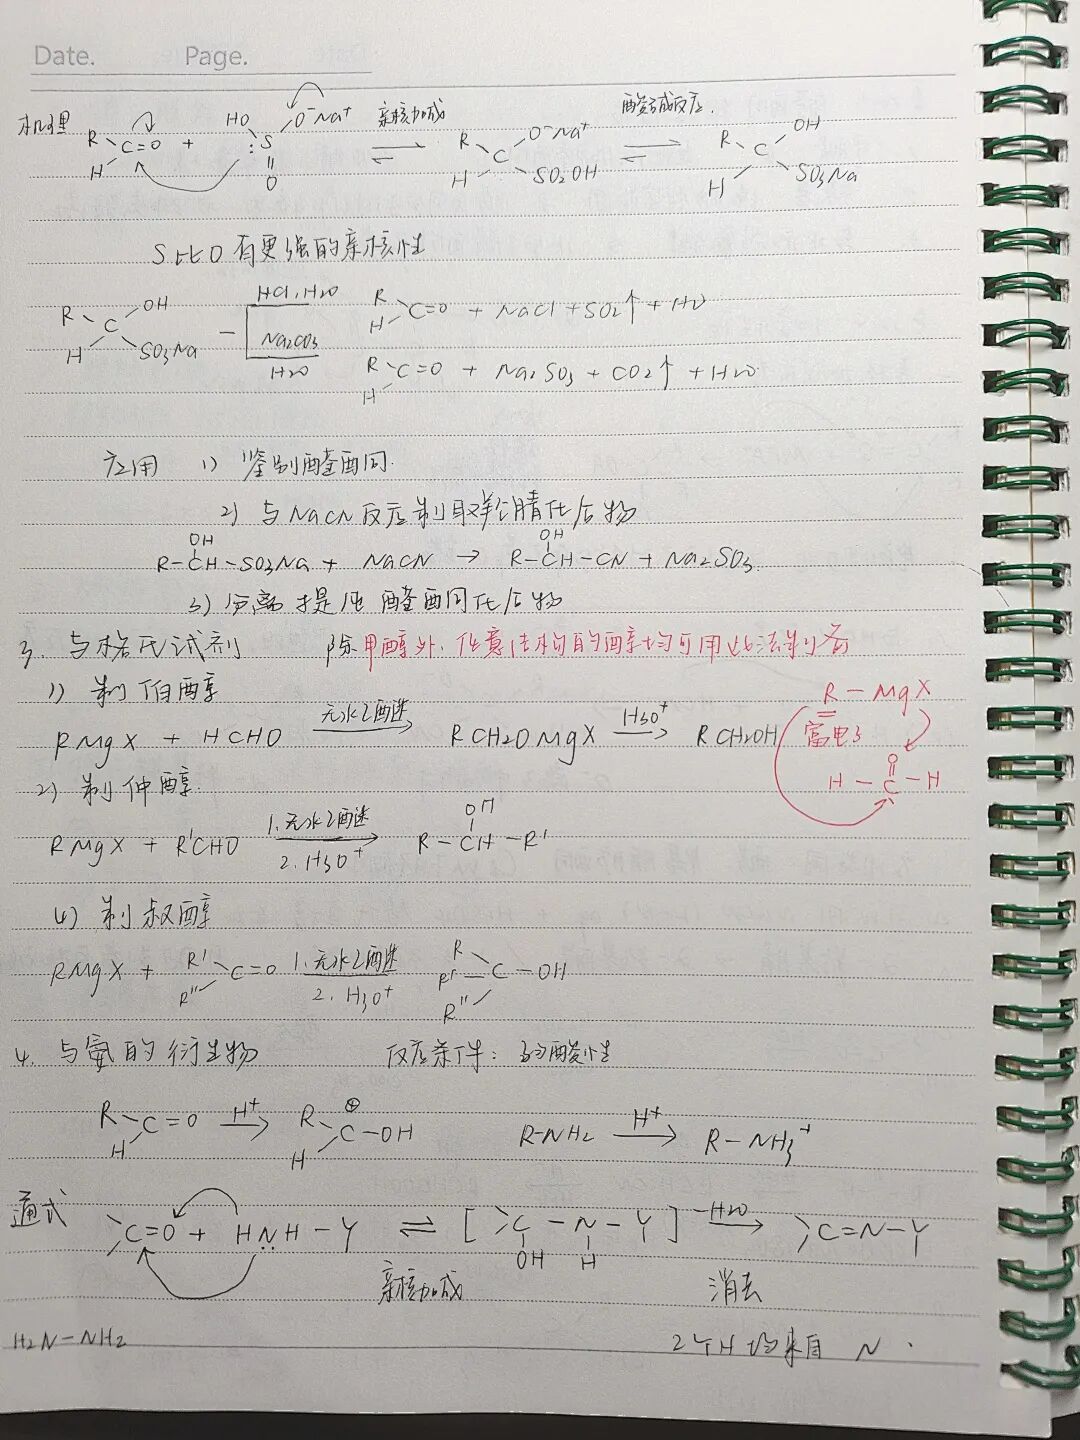 Date. Page.
机理 R H C=O + HO S O⁻Na⁺ O 亲核加成 ⇌ R H C O⁻Na⁺ SO2OH 酸碱反应. ⇌ R H C OH SO3Na
S比O有更强的亲核性
R H C OH SO3Na
HCl, H2O R H C=O + NaCl + SO2↑ + H2O
Na2CO3 H2O R H C=O + Na2SO3 + CO2↑ + H2O
应用 1) 鉴别醛酮.
2) 与NaCN反应制取羟腈化合物
R-CH(OH)-SO3Na + NaCN → R-CH(OH)-CN + Na2SO3.
3) 分离提纯醛酮化合物
3. 与格氏试剂 除甲醇外, 任意结构的醇均可用此法制备
1) 制伯醇
R-MgX
富电子
H-C(=O)-H
RMgX + HCHO 无水乙醚→ RCH2OMgX H3O⁺→ RCH2OH
2) 制仲醇.
RMgX + R'CHO 1.无水乙醚 2.H3O⁺→ R-CH(OH)-R'
4) 制叔醇
RMgX + R' R'' C=O 1.无水乙醚 2.H3O⁺ R R' R'' C-OH
4. 与氨的衍生物 反应条件: 弱酸性
R H C=O H⁺→ R H C⊕-OH R-NH2 H⁺→ R-NH3⁺
通式 C=O + HNH-Y ⇌ [C(OH)-N(H)-Y] -H2O→ C=N-Y
亲核加成 消去
H2N-NH2 2个H均来自 N.